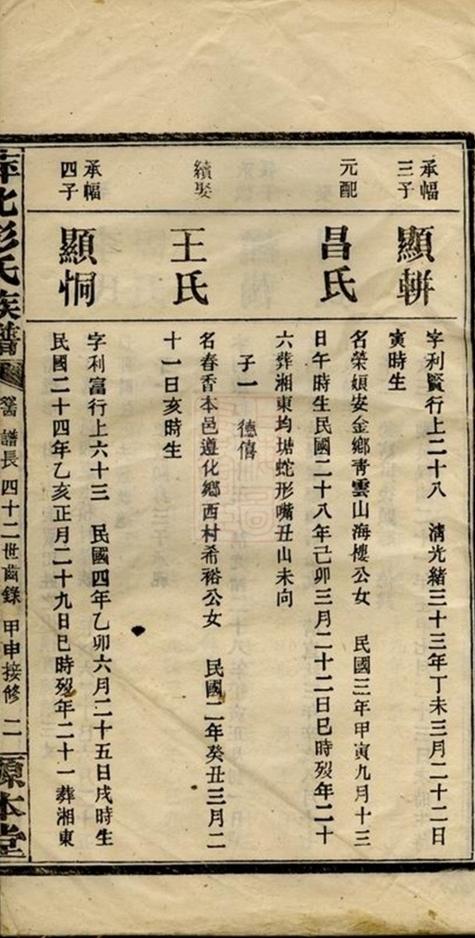 承幅
三子
顯軿
字利賢行上二十八　清光緒三十三年丁未三月二十二日
寅時生
元配
昌氏
名榮媜安金鄉青雲山海樓公女　民國三年甲寅九月十三
日午時生民國二十八年己卯三月二十二日巳時歿年二十
六葬湘東均塘蛇形嘴丑山未向
子一　德僖
續娶
王氏
名春香本邑遵化鄉西村希裕公女　民國二年癸丑三月二
十一日亥時生
承幅
四子
顯恫
字利富行上六十三　民國四年乙卯六月二十五日戌時生
民國二十四年乙亥正月二十九日巳時歿年二十一葬湘東
萍北彭氏族譜　譜長　四十二世齒錄　甲申接修　二　源本堂